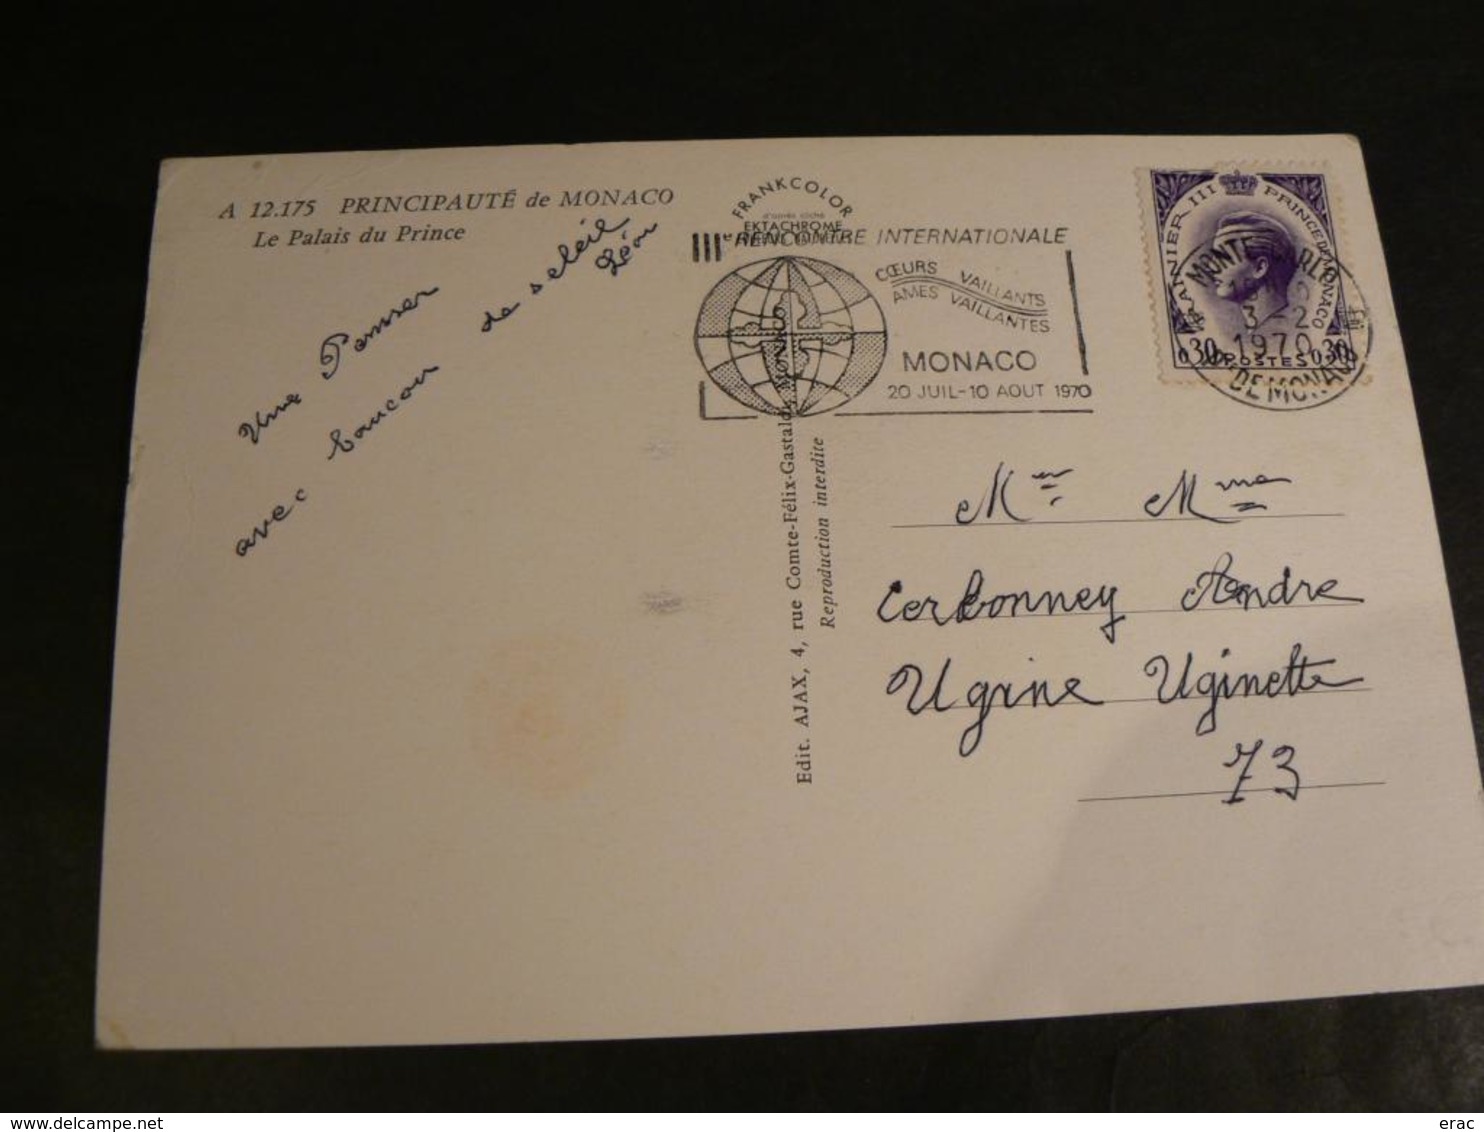 A 12.175 PRINCIPAUTÉ de MONACO
Le Palais du Prince
Une Penser
avec Coucou de soleil
Léon
FRANKCOLOR
d'après cliché
EKTACHROME
IIIe RENCONTRE INTERNATIONALE
CŒURS VAILLANTS
AMES VAILLANTES
MONACO
20 JUIL-10 AOUT 1970
RAINIER III PRINCE DE MONACO
0,30 POSTES 0,30
MONTE-CARLO
3-2
1970
DE MONACO
Edit. AJAX, 4, rue Comte-Félix-Gastaldi, MONACO
Reproduction interdite
Mr Mme
Cerbonney Andre
Ugine Uginette
73
www.delcampe.net
erac